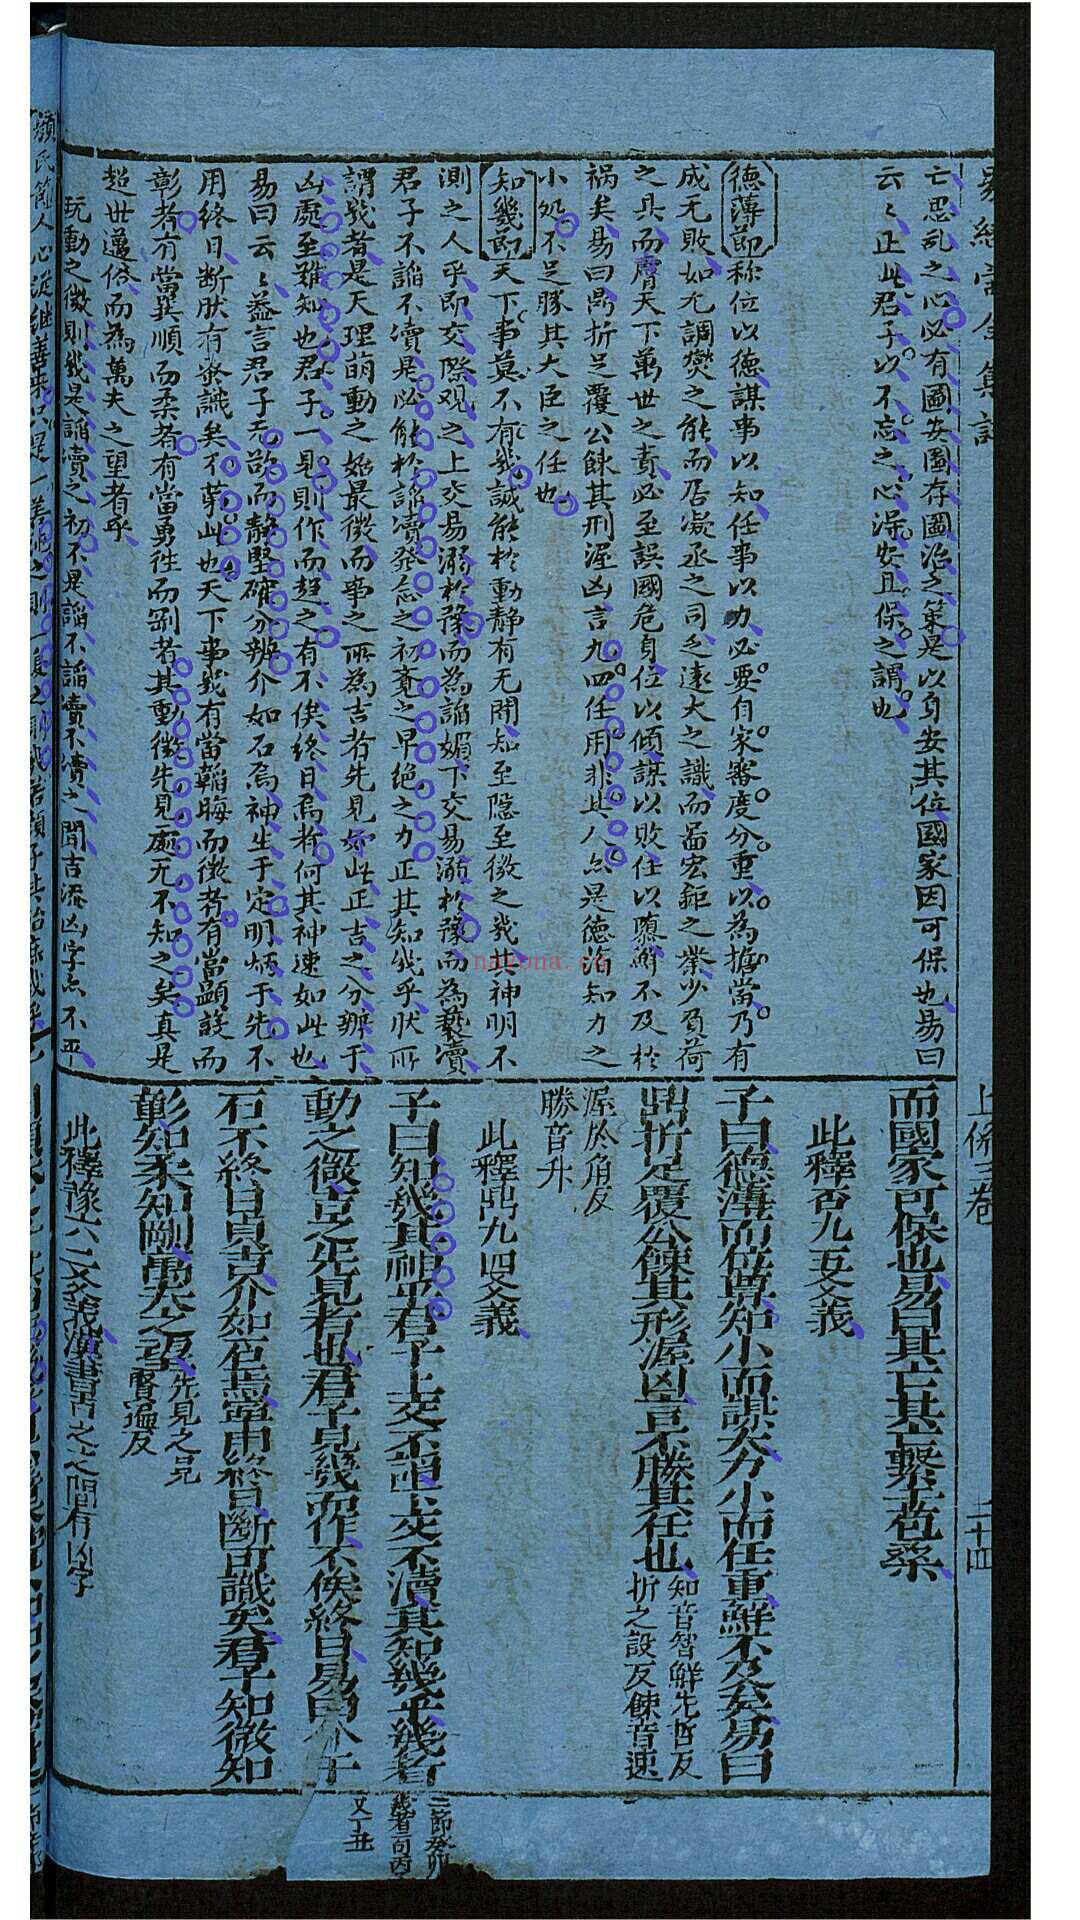 亡思乱之心必有圖安圖存圖治之策是以身安其位國家因可保也易曰
云〻正此君子以不忘之心深安且保之謂也
德薄節称位以德謀事以知任事以力必要自家審度分重以為擔當乃有
成无敗如无調爕之能而居凝丞之司乏遠大之識而啚宏鉅之業少負荷
之具而膺天下萬世之責必至誤國危身位以傾謀以敗任以隳鮮不及於
禍矣易曰鼎折足覆公餗其刑渥凶言九四任用非其人点是德薄知力之
小処不足勝其大臣之任也
知幾節天下事莫不有幾誠能於動靜有无開知至隱至微之幾其神明不
測之人乎即交際观之上交易溺於豫而為諂媚下交易溺於豫而為褻瀆
君子不諂不瀆是必能於諂瀆発念之初覚之早絕之力正其知幾乎狀所
謂幾者是天理萌動之始最微而事之所為吉者先見於此正吉之分辨于
凶處至难知也君子一見則作而趋之有不俟終日焉者何其神速如此也
易曰云〻盖言君子无欲而靜堅確分辨介如石焉神生于定明炳于先不
用終日断肰有所識矣不第此也天下事幾有當韜晦而微者有當顯設而
彰者有當巽順而柔者有當勇往而剛者其動微先見處无不知之矣真是
超世邁俗而為萬夫之望者乎
玩動之微則幾是諂瀆之初不是諂不諂瀆不瀆之間吉添凶字点不平
上係三卷
二十四
而國家可保也易曰其亡其亡繫于苞桑
此釋否九五爻義
子曰德薄而位尊知小而謀大力小而任重鮮不及矣易曰
鼎折足覆公餗其形渥凶言不勝其任也知音智鮮先哲反
折之設反餗音速
渥於角反
勝音升
此釋鼎九四爻義
子曰知幾其神乎君子上交不諂下交不瀆其知幾乎幾者
動之微吉之先見者也君子見幾而作不俟終日易曰介于
石不終日貞吉介如石焉寧用終日斷可識矣君子知微知
彰知柔知剛萬夫之望先見之見
賢遍反
此釋豫六二爻義漢書吉之之間有凶字
二節癸卯
幾者句丙
又丁丑